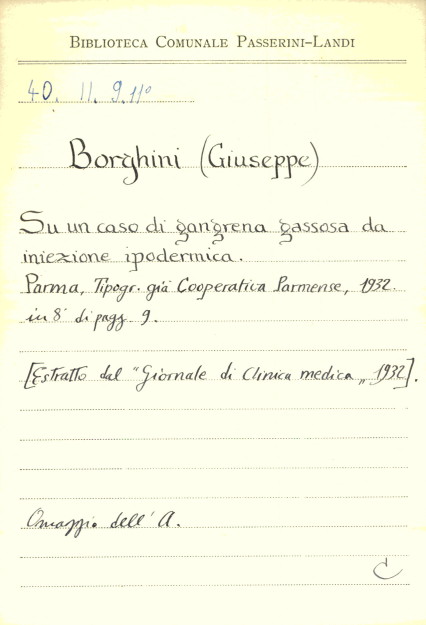 BIBLIOTECA COMUNALE PASSERINI-LANDI
40. 11. 9. 11º
Borghini (Giuseppe)
Su un caso di gangrena gassosa da
iniezione ipodermica.
Parma, Tipogr. già Cooperatica Parmense, 1932.
in 8º di pagg. 9.
[Estratto dal "Giornale di Clinica medica„ 1932].
Omaggio dell'A.
C